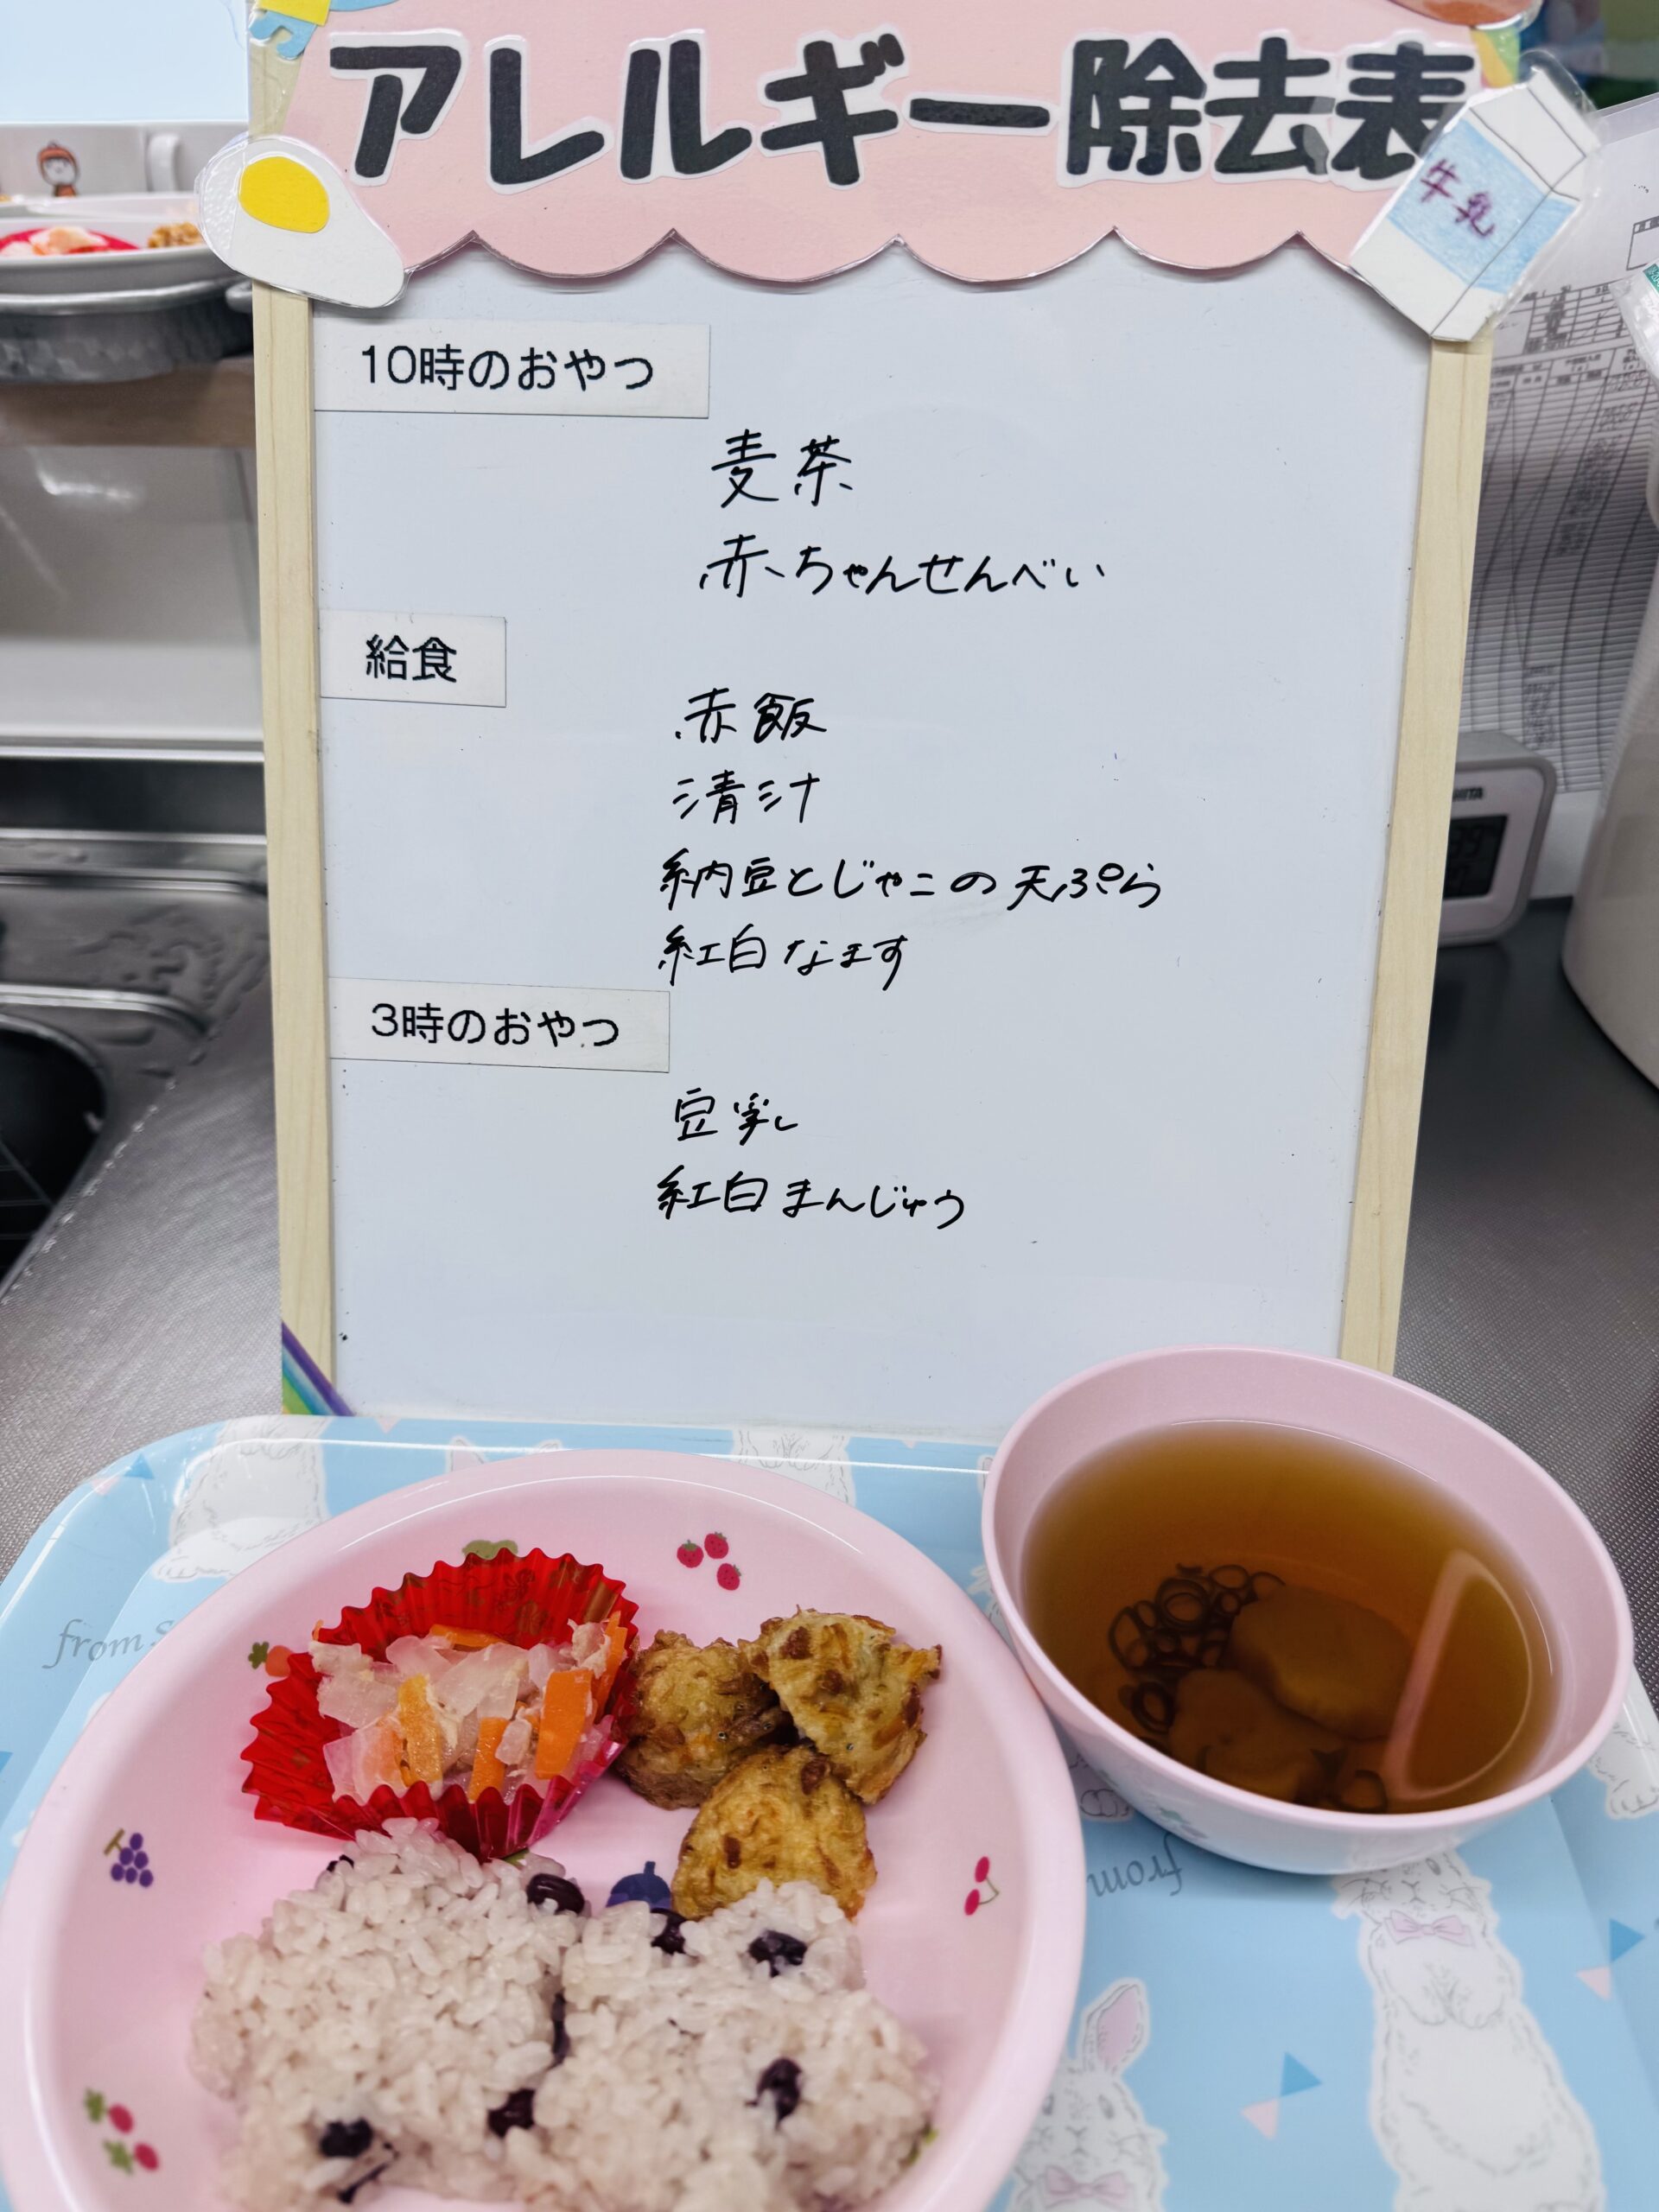 アレルギー除去表
牛乳
10時のおやつ
麦茶
赤ちゃんせんべい
給食
赤飯
清汁
納豆とじゃこの天ぷら
紅白なます
3時のおやつ
豆乳
紅白まんじゅう
from
from